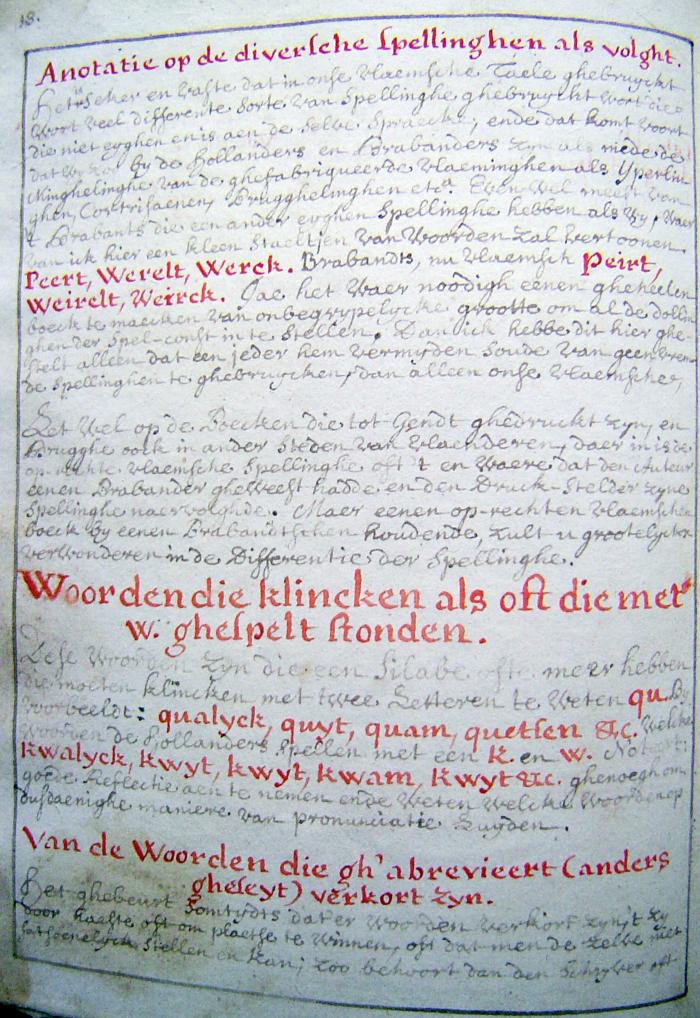 18.
Anotatie op de diversche spellinghen als volght.
Het is seker en vaste dat in onse vlaemsche Taele ghebruyckt
Wort veel differente sorte van Spellinghe ghebruyckt Wort die
die niet eyghen en is aen de selve Spraecke, ende dat komt voort
dat by de Hollanders en Brabanders zyn als mede de
van de ghefabriqueerde vlaeminghen als Yperlin
ghen, Cortrisaenen, Brugghelinghen etca. Even wel meest van
't Brabants die een ander eyghen Spellinghe hebben als Wy, Waer
van ick hier een kleen Staeltjen van Woorden zal vertoonen.
Peert, Werelt, Werck. Brabandts, nu vlaemsch Peirt,
Weirelt, Weirck. Doe het Waer noodigh eenen gheheelen
boeck te maecken van onbegrypelycke grootte om al de dollin
ghen der Spel-const in te stellen. Dan ick hebbe dit hier ghe-
stelt alleen dat een jeder hem vermyden soude van geen vrem
de Spellinghen te ghebruycken, dan alleen onse vlaemsche,
Let wel op de Boecken die tot Gendt ghedruckt zyn, en
Brugghe oock in ander Steden van vlaenderen, daer in is de
op-rechte vlaemsche Spellinghe oft 't en Waere dat den Auteur
eenen Brabander gheweest hadde en den Druck-Stelder zyne
Spellinghe naervolghde. Maer eenen op-rechten vlaemschen
boeck by eenen Brabandtschen houdende, zult u grootelycx
verwonderen in de Differentie der Spellinghe.
Woorden die klincken als oft die met
w. ghespelt stonden.
Dese Woorden zyn die een Silabe ofte meer hebben
die moeten klincken met twee Letteren te weten qu. By
voorbeeldt: qualyck, quyt, quam, quetsen &c. Welcke
woorden de Hollanders Spellen met een K. en w. Noteert:
kwalyck, kwyt, kwyt, kwam, kwyt &c. ghenoegh om
goede Reflectie aen te nemen ende Weten Welcke Woorden op
dusdaenighe maniere van pronunciatie Luyden.
Van de Woorden die gh'abrevieert (anders
gheseyt) verkort zyn.
Het ghebeurt Somtydts dat er woorden verkort zyn, 't zy
door haeste oft om plaetse te Winnen, oft dat men de zelve niet
Stellen en kan; zoo behoort dan den Schryver oft